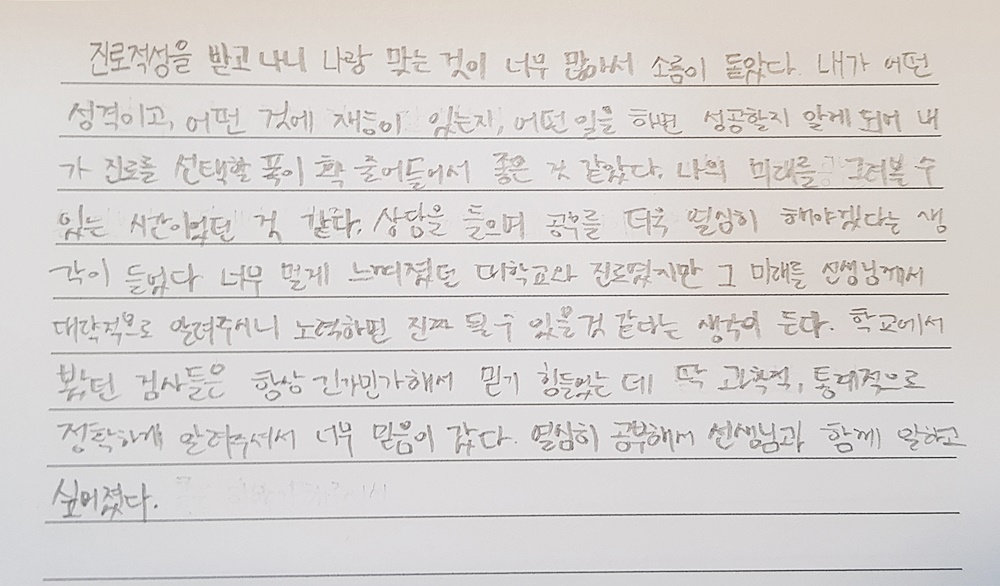 진로적성을 받고 나니 나랑 맞는 것이 너무 많아서 소름이 돋았다. 내가 어떤
성격이고, 어떤 것에 재능이 있는지, 어떤 일을 하면 성공할지 알게 되어 내
가 진로를 선택할 폭이 확 줄어들어서 좋은 것 같았다. 나의 미래를 그려볼 수
있는 시간이었던 것 같다. 상담을 들으며 공부를 더욱 열심히 해야겠다는 생
각이 들었다. 너무 멀게 느껴졌던 대학교와 진로였지만 그 미래를 선생님께서
대략적으로 알려주시니 노력하면 진짜 될 수 있을 것 같다는 생각이 든다. 학교에서
봤던 검사들은 항상 긴가민가해서 믿기 힘들었는 데 딱 과학적, 통계적으로
정확하게 알려주셔서 너무 믿음이 갔다. 열심히 공부해서 선생님과 함께 일하고
싶어졌다.